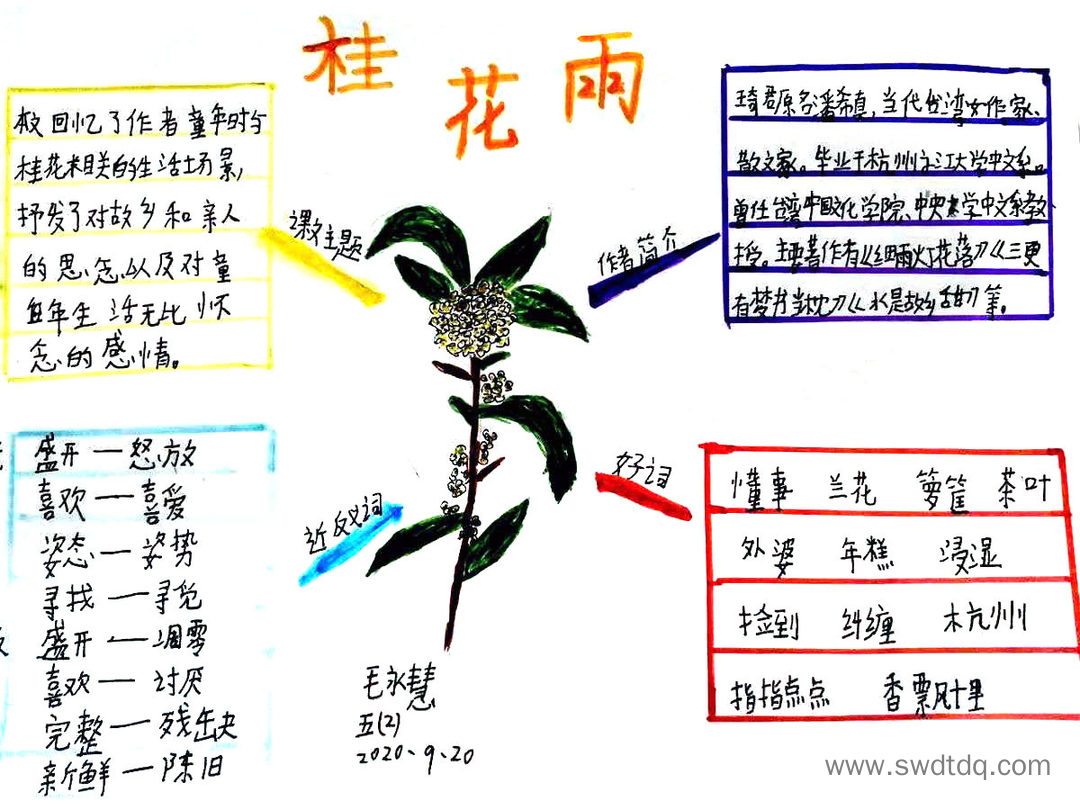 桂花雨
本文回忆了作者童年时与
桂花相关的生活场景,
抒发了对故乡和亲人
的思念以及对童
年生活无比怀
念的感情。
课文主题
琦君原名潘希真,当代台湾女作家、
散文家。毕业于杭州之江大学中文系。
曾任台湾中国文化学院、中央大学中文系教
授。主要著作有《红雨灯花落》《三更
有梦书当枕》《水是故乡甜》等。
作者简介
盛开—怒放
喜欢—喜爱
姿态—姿势
寻找—寻觅
盛开—凋零
喜欢—讨厌
完整—残缺
新鲜—陈旧
近反义词
好词
懂事 兰花 箩筐 茶叶
外婆 年糕 浸湿
捡到 纠缠 杭州
指指点点 香飘十里
毛永慧
五(2)
2020、9、20
www.swdtdq.com